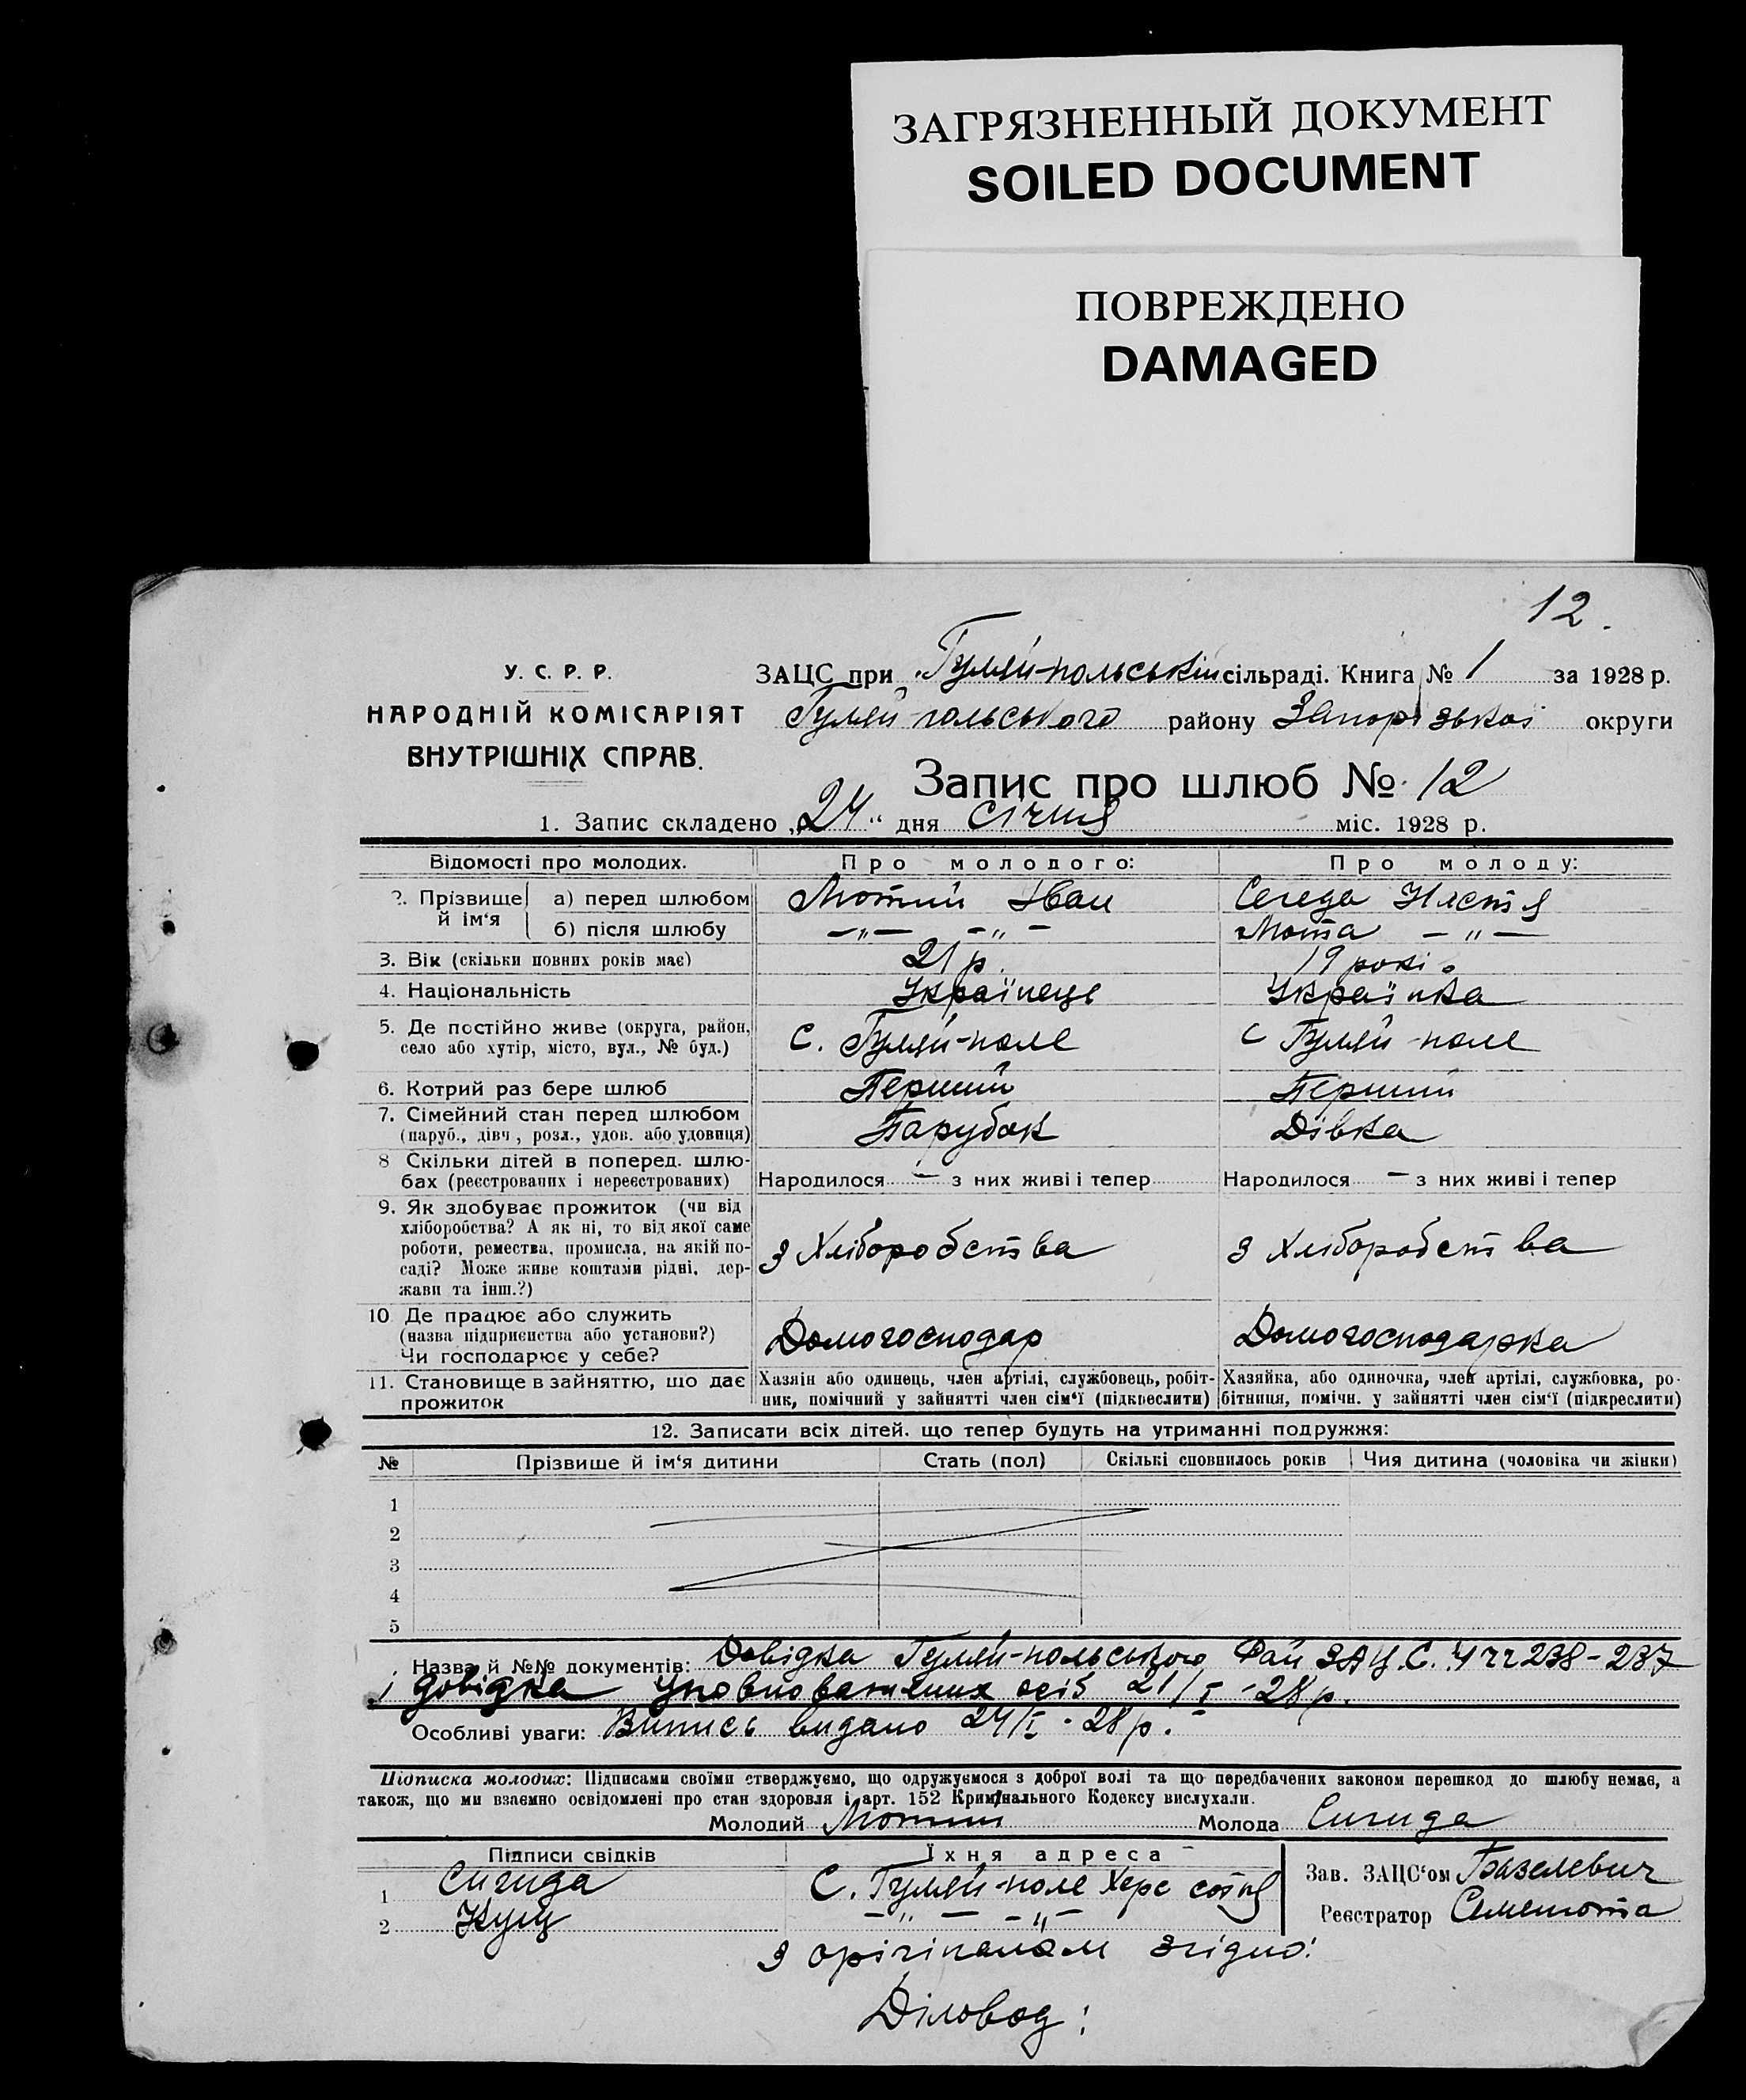 ЗАГРЯЗНЕННЫЙ ДОКУМЕНТ
SOILED DOCUMENT
ПОВРЕЖДЕНО
DAMAGED
12.
У. С. Р. Р.
НАРОДНІЙ КОМІСАРІЯТ
ВНУТРІШНІХ СПРАВ.
ЗАЦС при Гуляй-польській сільраді. Книга № 1 за 1928 р.
Гуляй-польського району Запорізької округи
Запис про шлюб № 12
1. Запис складено „24“ дня січня міс. 1928 р.
Відомості про молодих. Про молодого: Про молоду:
2. Прізвище й ім‘я а) перед шлюбом Мотий Іван Сегеда Настя
б) після шлюбу —„— —„— Мота —„—
3. Вік (скільки повних років має) 21 р. 19 рокі.
4. Національність Українець Українка
5. Де постійно живе (округа, район, село або хутір, місто, вул., № буд.) С. Гуляй-поле С Гуляй-поле
6. Котрий раз бере шлюб Перший Перший
7. Сімейний стан перед шлюбом (паруб., дівч., розл., удов. або удовиця) Парубок Дівка
8 Скільки дітей в поперед. шлюбах (реєстрованих і нереєстрованих) Народилося — з них живі і тепер Народилося — з них живі і тепер
9. Як здобуває прожиток (чи від хліборобства? А як ні, то від якої саме роботи, ремества, промисла, на якій посаді? Може живе коштами рідні, держави та інш.?) З Хліборобства З Хліборобства
10 Де працює або служить (назва підприєнства або установи?) Чи господарює у себе? Домогосподар Домогосподарка
11. Становище в зайняттю, що дає прожиток Хазяін або одинець, член артілі, службовець, робітник, помічний у зайнятті член сім‘ї (підкреслити) Хазяйка, або одиночка, член артілі, службовка, робітниця, помічн. у зайнятті член сім‘ї (підкреслити)
12. Записати всіх дітей. що тепер будуть на утриманні подружжя:
№ Прізвише й ім‘я дитини Стать (пол) Скількі сповнилось років Чия дитина (чоловіка чи жінки)
1
2
3
4
5
Назва й №№ документів: Довідка Гуляй-польського Рай ЗАЦ.С. 238-237
і довідка уповноважених осіб 21/I-28 р.
Особливі уваги: Випись видано 24/I-28 р.
Підписка молодих: Підписами своїми стверджуємо, що одружуємося з доброї волі та що передбачених законом перешкод до шлюбу немає, а
також, що ми взаємно освідомлені про стан здоровля і арт. 152 Кримінального Кодексу вислухали.
Молодий Мотий Молода Сигида
Підписи свідків Їхня адреса
1 Сигида С. Гуляй-поле Херс сотня
2 Куц —„— —„—
Зав. ЗАЦС‘ом Базелевич
Реєстратор Семенота
З орігіналом згідно:
Діловод: